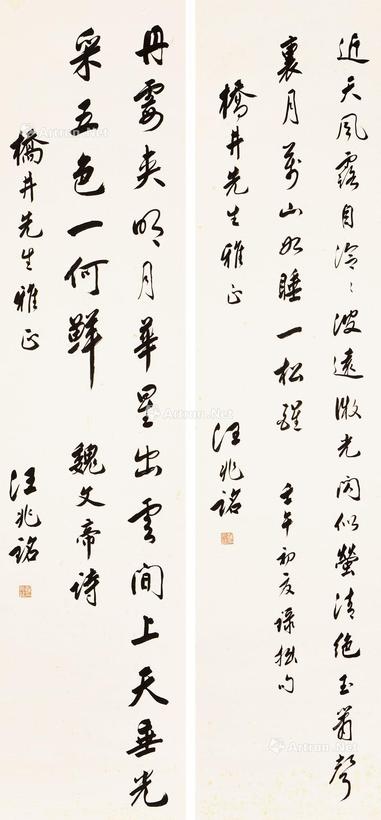 近天風露自泠泠波遠微光閃似螢清絕玉簫聲
裏月萬山如睡一松醒 壬午初夏錄拙句
橋井先生雅正
汪兆銘
丹霞夾明月華星出雲間上天垂光
采五色一何鮮 魏文帝詩
橋井先生雅正
汪兆銘
Artron.Net
Artron.Net
Artron.Net
Artron.Net